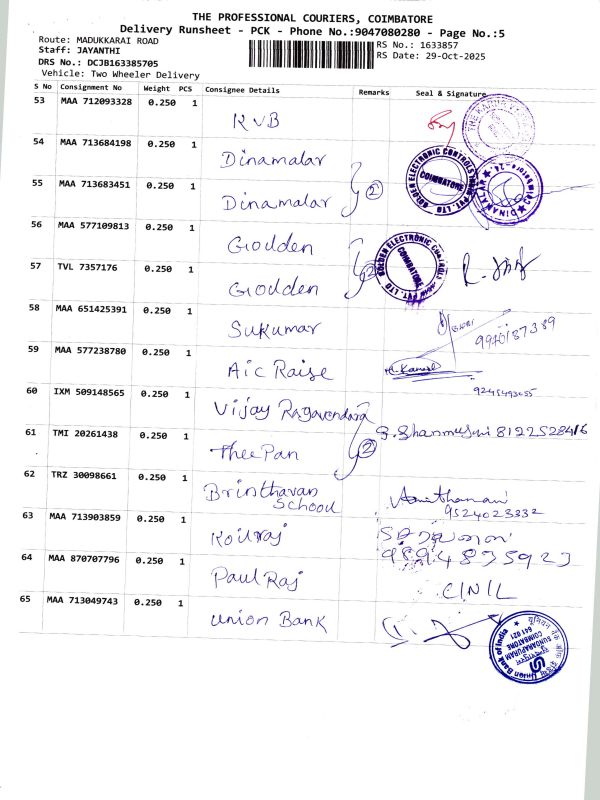 THE PROFESSIONAL COURIERS, COIMBATORE
Delivery Runsheet - PCK - Phone No.:9047080280 - Page No.:5
Route: MADUKKARAI ROAD
Staff: JAYANTHI
RS No.: 1633857
DRS No.: DCJB163385705
RS Date: 29-Oct-2025
Vehicle: Two Wheeler Delivery
S No Consignment No Weight PCS Consignee Details Remarks Seal & Signature
53 MAA 712093328 0.250 1 KVB
54 MAA 713684198 0.250 1 Dinamalar
55 MAA 713683451 0.250 1 Dinamalar 2
GOLDEN ELECTRONIC CONTROLS PVT. LTD COIMBATORE
DINAMALAR
56 MAA 577109813 0.250 1 Goldden
57 TVL 7357176 0.250 1 Goldden 2
GOLDEN ELECTRONIC CONTROLS PVT. LTD COIMBATORE
58 MAA 651425391 0.250 1 Sukumar
59 MAA 577238780 0.250 1 Aic Raise
60 IXM 509148565 0.250 1 Vijay Ragavendara
61 TMI 20261438 0.250 1 TheePan 2 8122528416
62 TRZ 30098661 0.250 1 Brinthavan School
9524023332
63 MAA 713903859 0.250 1 Koilraj
9894835923
64 MAA 870707796 0.250 1 Paul Raj
65 MAA 713049743 0.250 1 Union Bank
Union Bank of India
SUNDARAPURAM
COIMBATORE
641 021